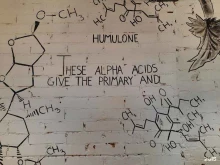 O-CH3
HUMULONE
THESE ALPHA ACIDS
GIVE THE PRIMARY AND
H
CH3
CH3
OH